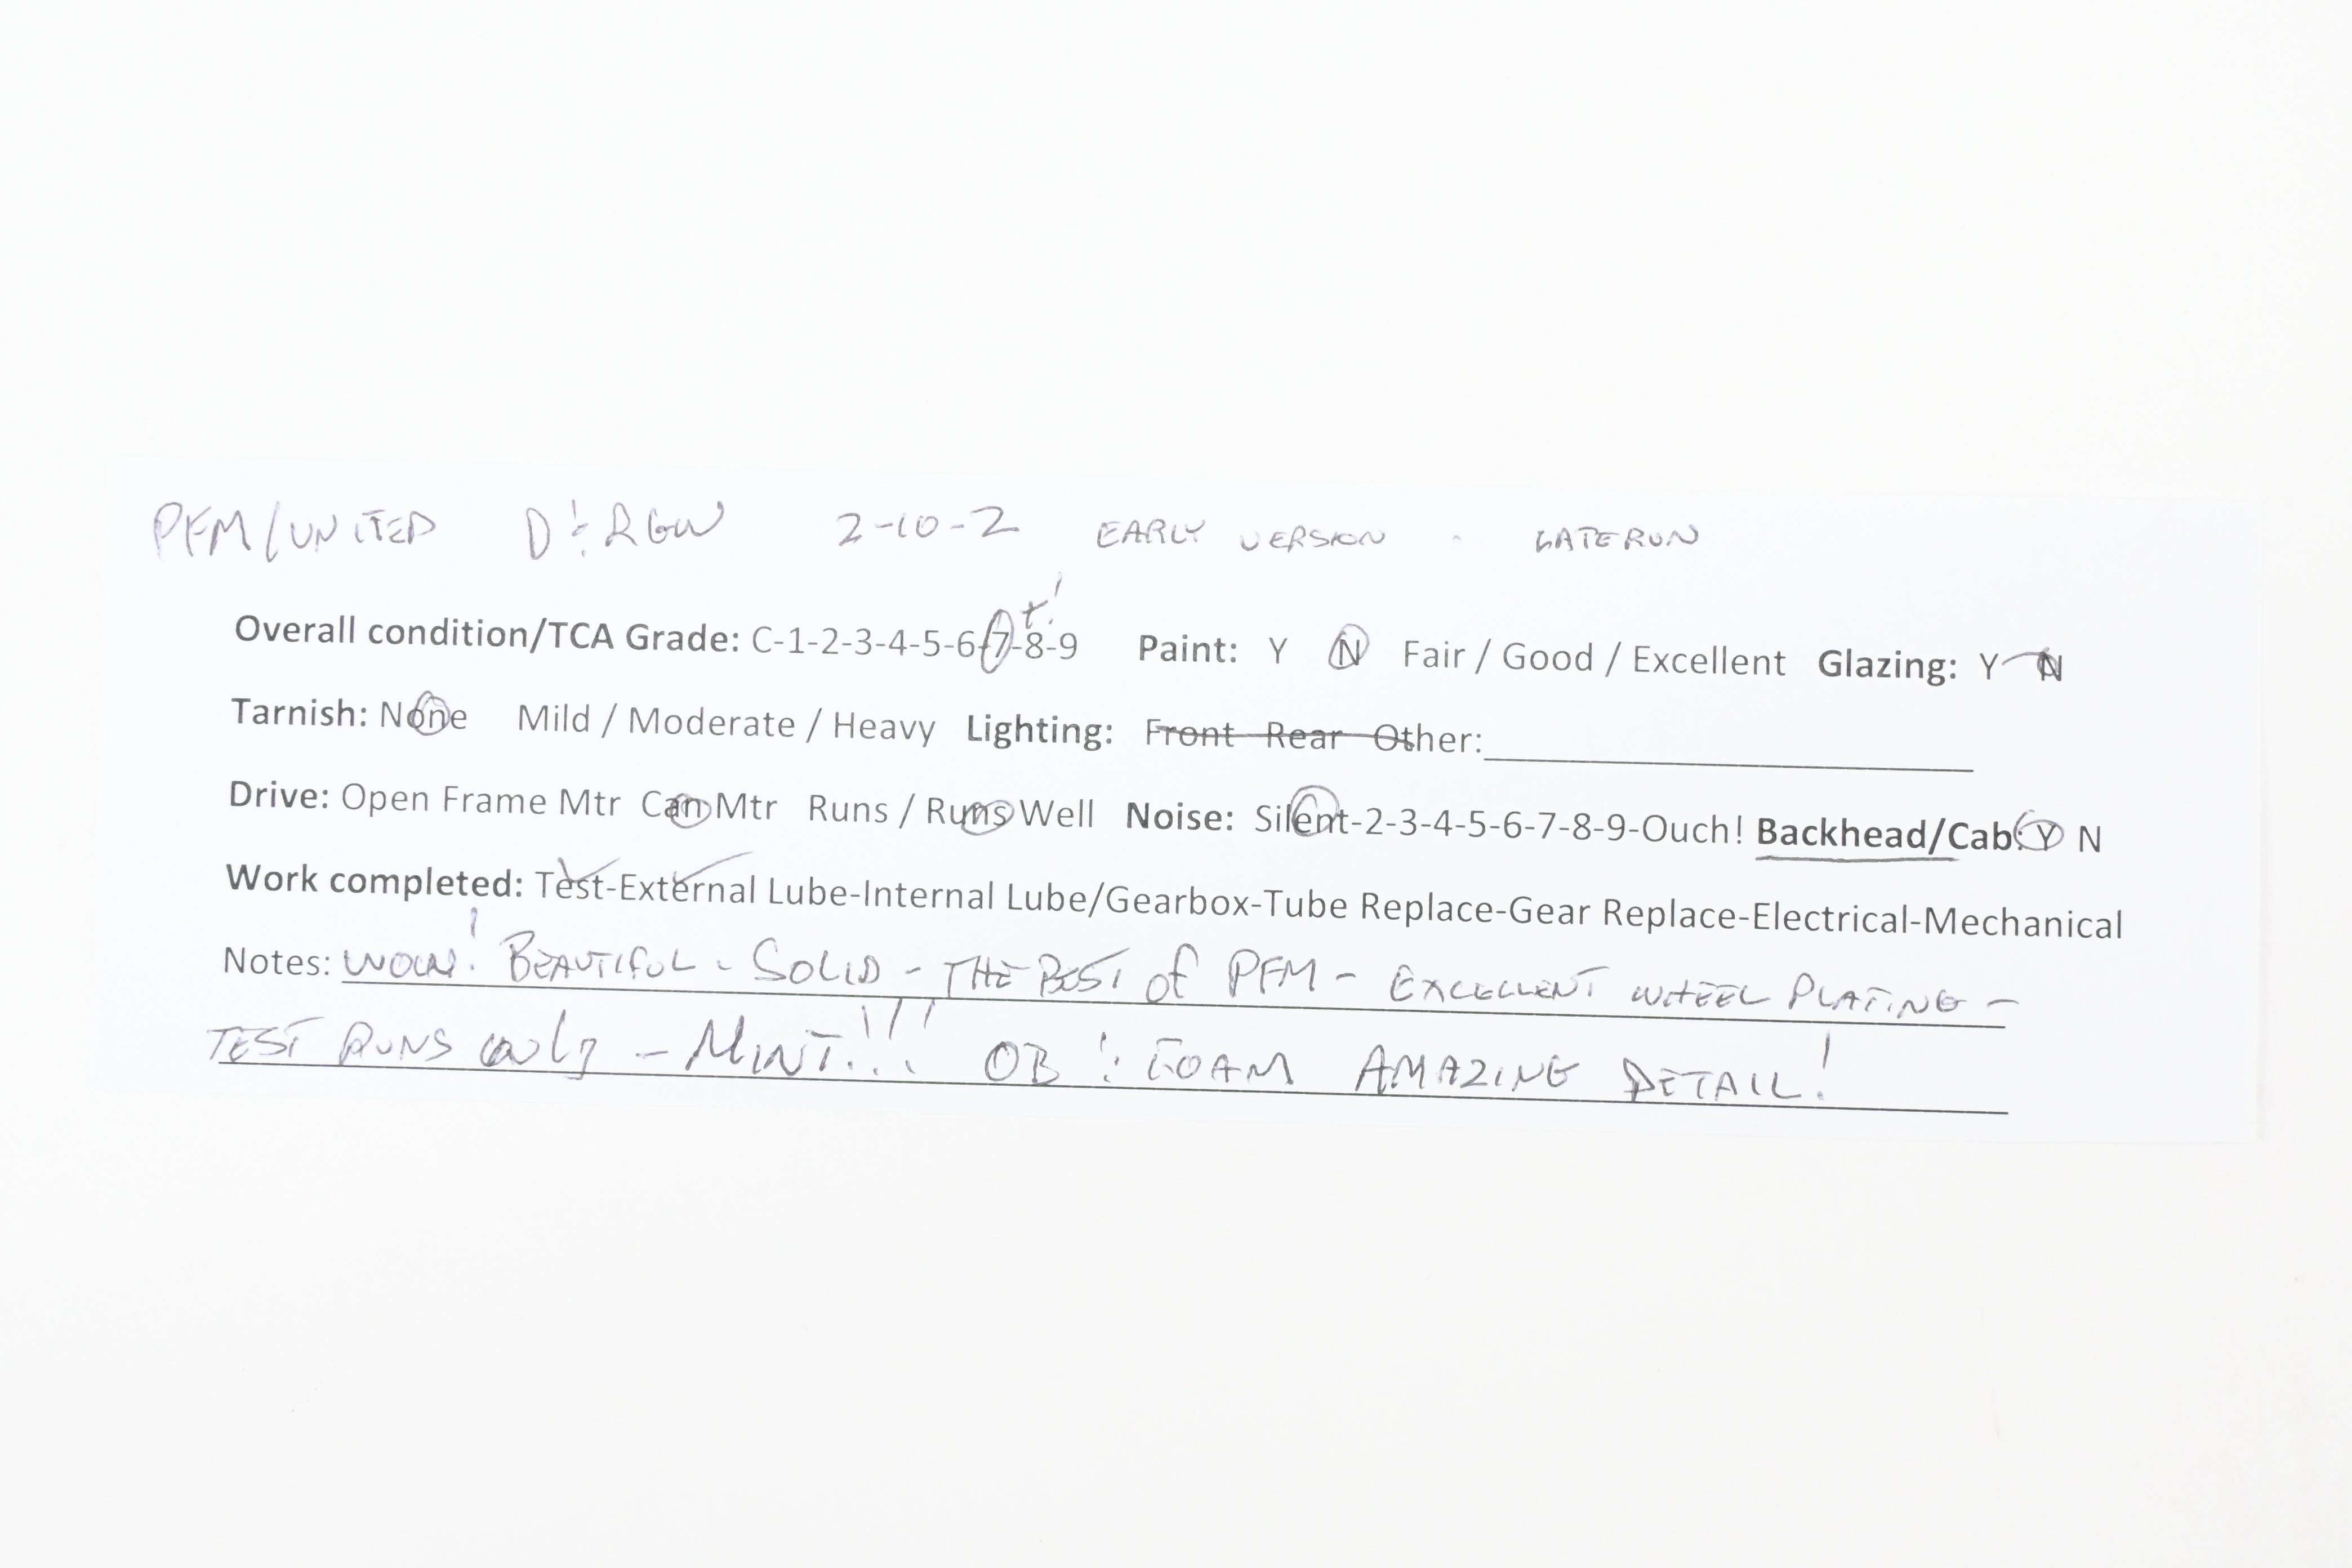 PFM/UNITED D&RGW 2-10-2 EARLY VERSION - LATE RUN
Overall condition/TCA Grade: C-1-2-3-4-5-6-7-8-9 +! Paint: Y N Fair / Good / Excellent Glazing: Y N
Tarnish: None Mild / Moderate / Heavy Lighting: Front Rear Other:
Drive: Open Frame Mtr Can Mtr Runs / Runs Well Noise: Silent-2-3-4-5-6-7-8-9-Ouch! Backhead/Cab: Y N
Work completed: Test-External Lube-Internal Lube/Gearbox-Tube Replace-Gear Replace-Electrical-Mechanical
Notes: WOW! BEAUTIFUL - SOLID - THE BEST of PFM - EXCELLENT WHEEL PLATING -
TEST RUNS only - MINT!!! OB & FOAM AMAZING DETAIL!